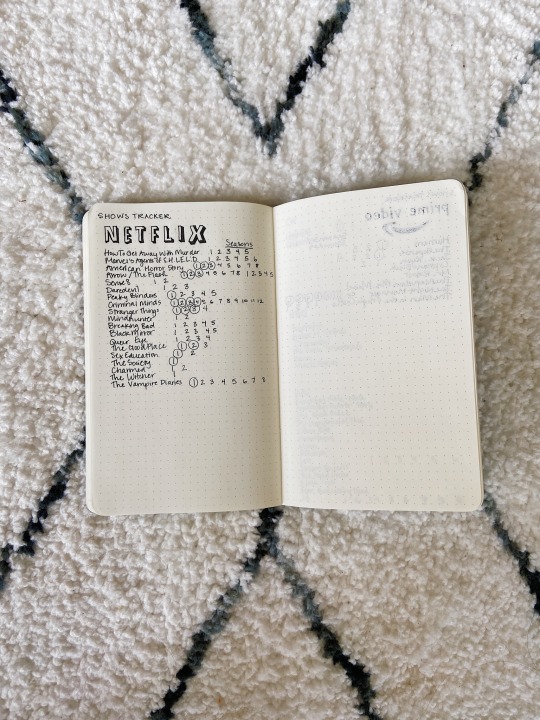 SHOWS TRACKER
NETFLIX
Seasons
How To Get Away With Murder 1 2 3 4 5
Marvel's Agents of S.H.I.E.L.D. 1 2 3 4 5 6
American Horror Story 1 2 3 4 5 6 7 8
Arrow / The Flash 1 2 3 4 5 6 7 8 1 2 3 4 5
Sense8 1 2
Daredevil 1 2 3
Peaky Blinders 1 2 3 4 5
Criminal Minds 1 2 3 4 5 6 7 8 9 10 11 12
Stranger Things 1 2 3 4
Mindhunter 1 2
Breaking Bad 1 2 3 4 5
Black Mirror 1 2 3 4 5
Queer Eye 1 2 3 4
The Good Place 1 2 3
Sex Education 1 2
The Society 1
Charmed 1 2
The Witcher 1
The Vampire Diaries 1 2 3 4 5 6 7 8
prime video